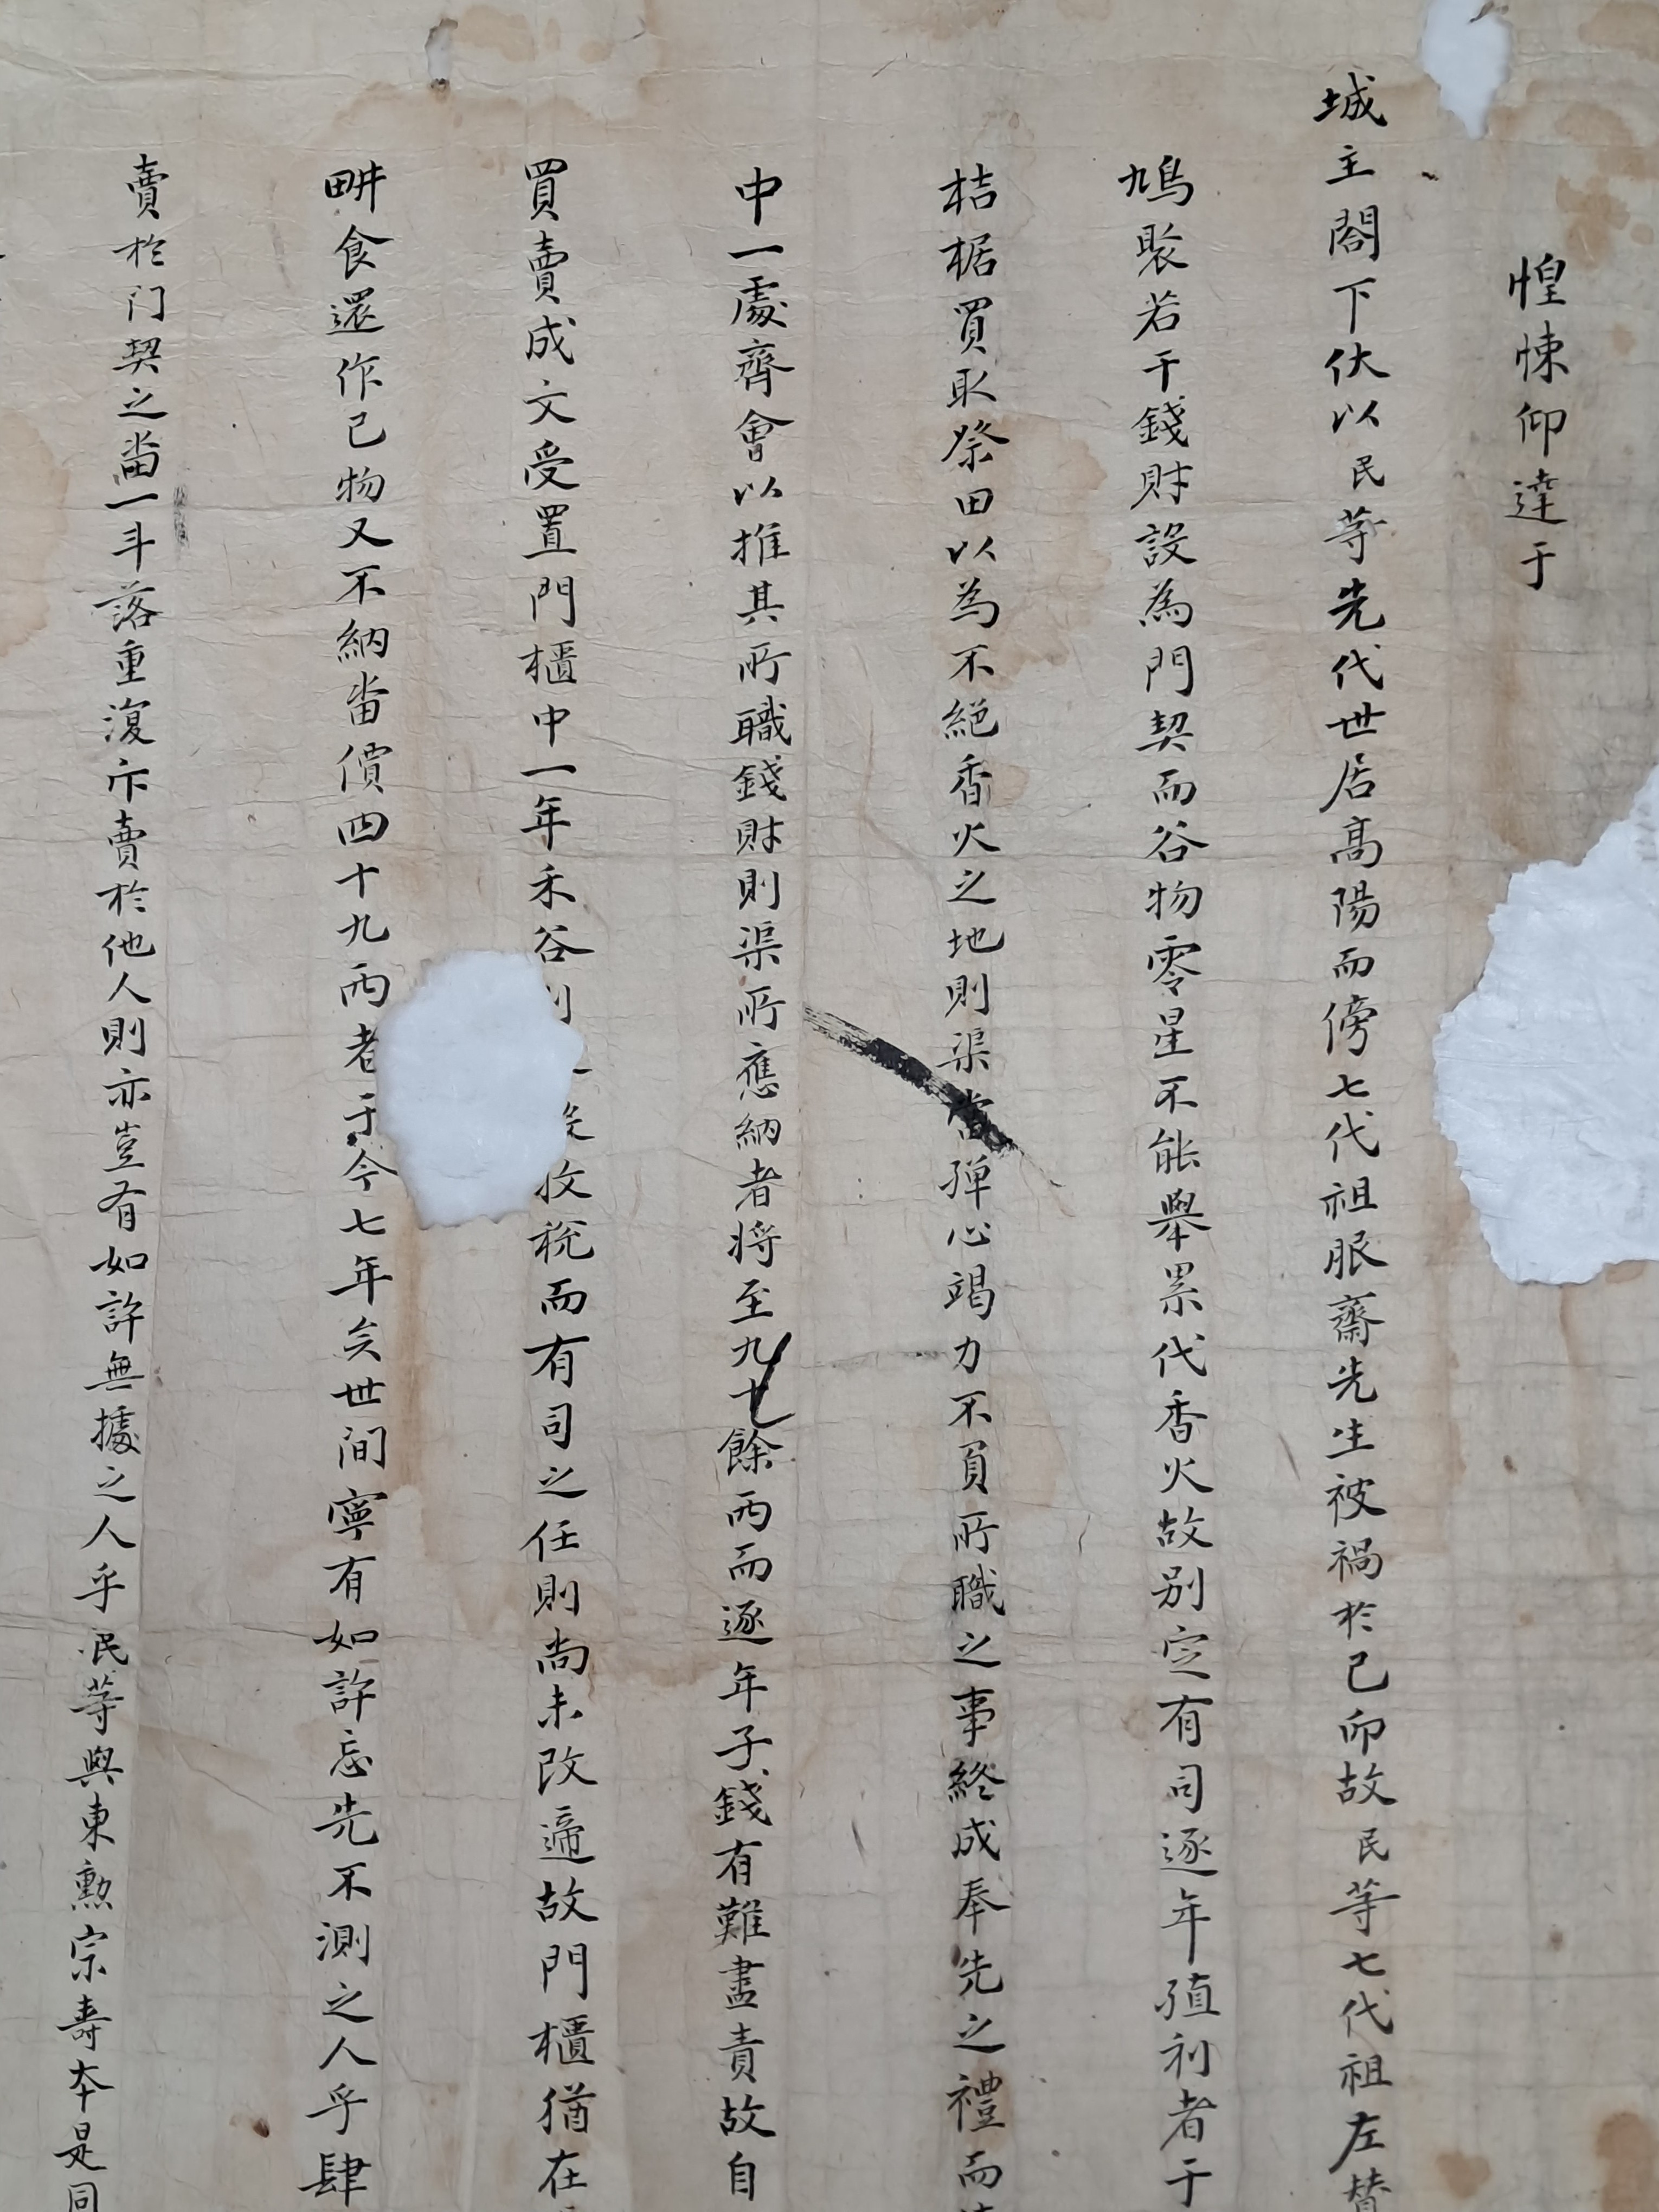 惶悚仰達于
城主閤下伏以民等先代世居高陽而傍七代祖服齋先生被禍於己卯故民等七代祖左贊
鳩聚若干錢財設為門契而谷物零星不能舉累代香火故別定有司逐年殖利者于
桔椐買取祭田以為不絕香火之地則渠當殫心竭力不負所職之事終成奉先之禮而
中一處齊會以推其所職錢財則渠所應納者將至九七餘兩而逐年子錢有難盡責故自
買賣成文受置門櫃中一年禾谷收稅而有司之任則尚未改遞故門櫃猶在
畊食還作己物又不納畓價四十九兩者于今七年矣世間寧有如許忘先不測之人乎肆
賣於门契之畓一斗落重復斥賣於他人則亦豈有如許無據之人乎民等與東勲宗壽本是同